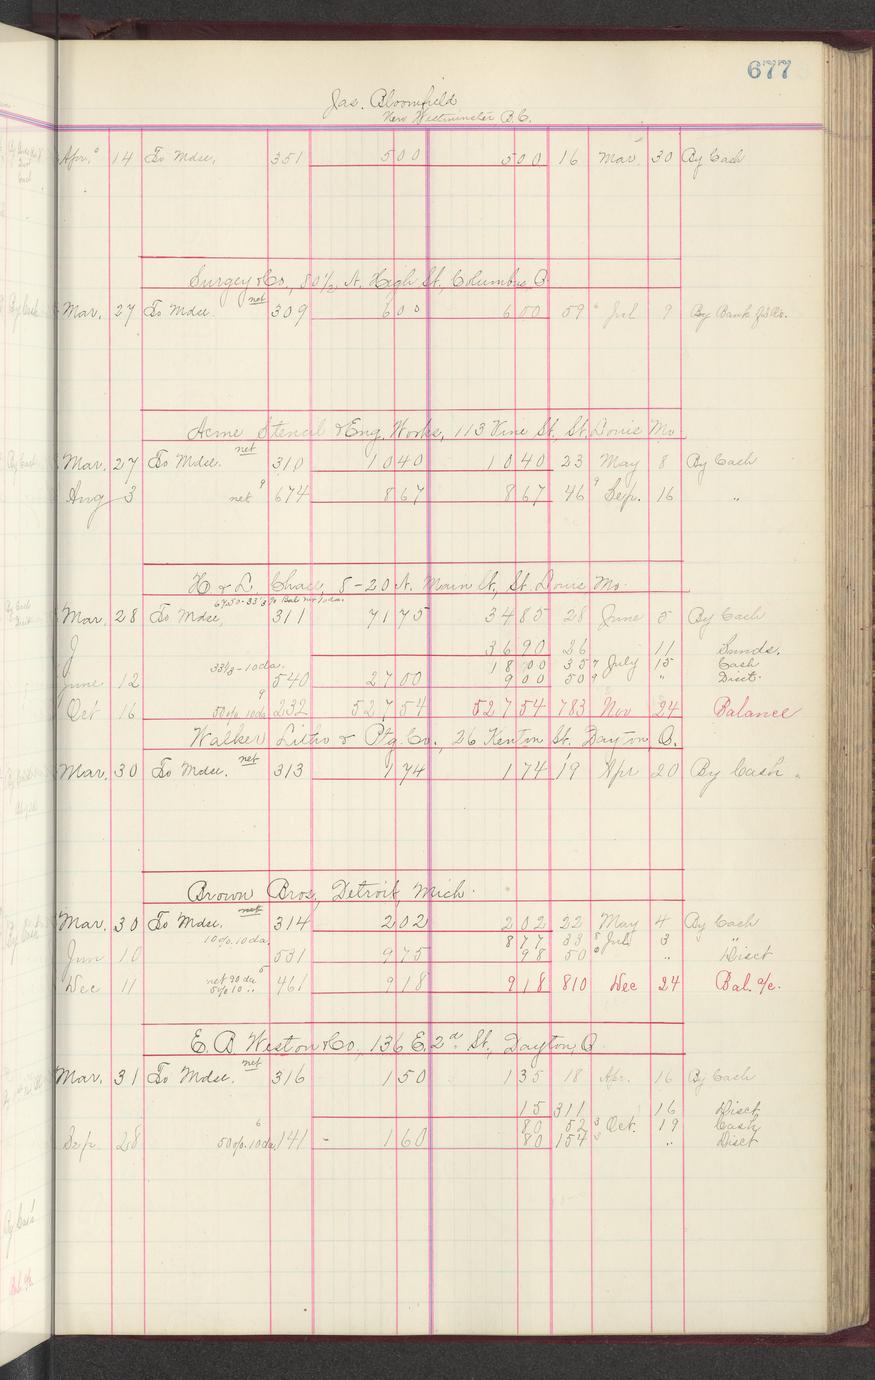 677
Jas. Bloomfield
New Westminster B.C.
Apr. 14 To Mdse, 351 500 500 16 Mar. 30 By Cash
Surgey & Co., 50½ N. High St., Columbus O.
Mar. 27 To Mdse. net 309 600 600 59 Jul 9 By Bank
Acme Stencil & Eng. Works, 113 Vine St., St. Louis Mo.
Mar. 27 To Mdse. net 310 1040 1040 23 May 8 By Cash
Aug 3 net 9 674 867 867 46 9 Sep. 16 "
H & L Chase, 8-20 N. Main St., St. Louis Mo.
Mar. 28 To Mdse, 311 7175 3485 28 June 5 By Cash
3690 26 11 Sunds.
33⅓-10 da. 1800 35 7 July 15 Cash
June 12 540 2700 900 50 9 " Disct.
Oct 16 50%. 10 da 9 232 52754 52754 783 Nov 24 Balance
Walker Litho & Ptg. Co., 26 Kenton St. Dayton O.
Mar. 30 To Mdse. net 313 174 174 19 Apr 20 By Cash
Brown Bros, Detroit, Mich.
Mar. 30 To Mdse. net 314 202 202 22 May 4 By Cash
10%. 10 da. 877 33 Jul 3 "
Jun 10 531 975 98 50 " Disct
Dec 11 net 90 da 5% 10 " 461 918 918 810 Dec 24 Bal. a/c.
E. B. Weston & Co, 136 E. 2d St., Dayton, O.
Mar. 31 To Mdse. net 316 150 135 18 Apr. 16 By Cash
15 311 16 Disct
80 52 3 Oct. 19 Cash
Sep. 28 50%. 10 da 6 141 - 160 80 154 3 " Disct